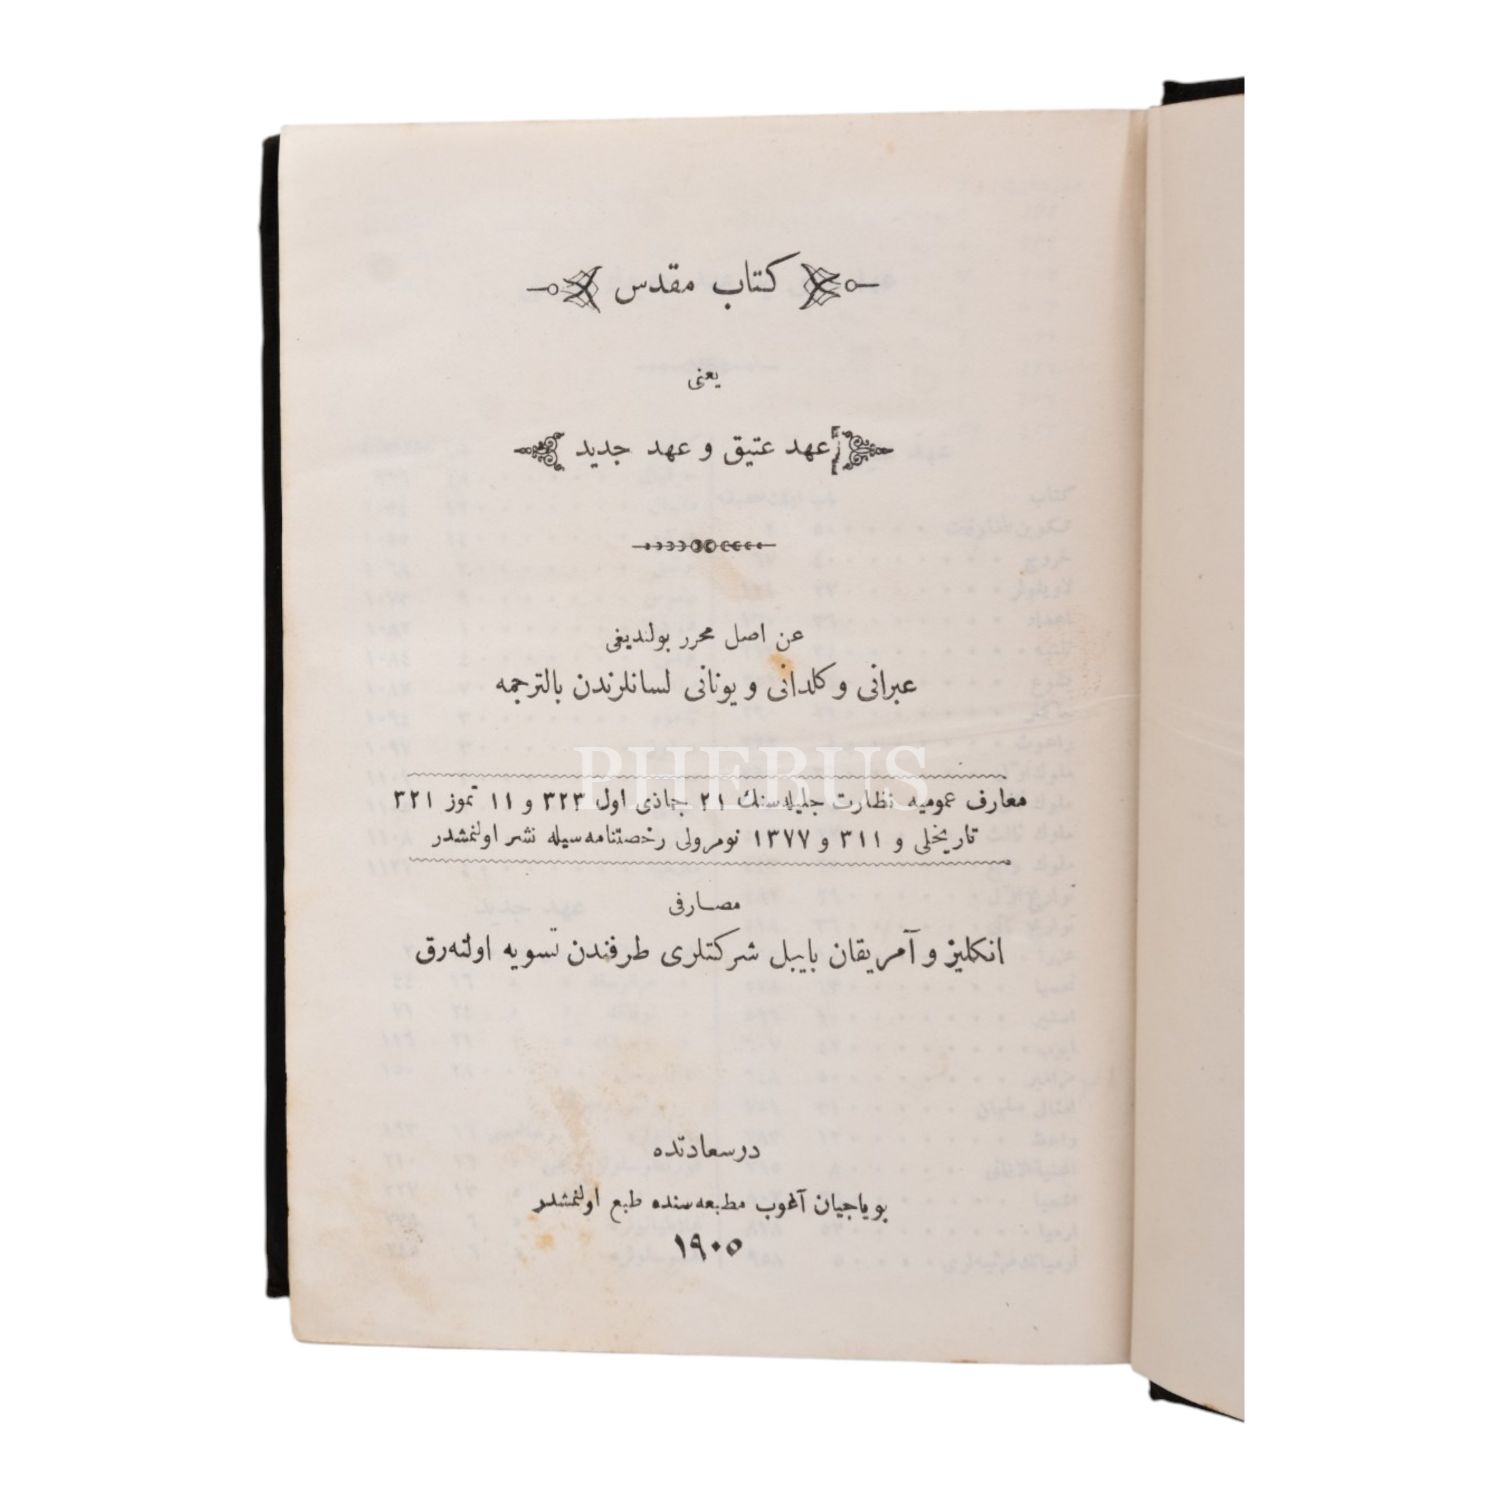 كتاب مقدس
یعنی
عهد عتیق و عهد جدید
عن اصل محرر بولندیغی
عبرانی و كلدانی و یونانی لسانلرندن بالترجمه
PHEBUS
معارف عمومیه نظارت جلیله‌سنك ٢١ جماذی اول ٣٢٣ و ١١ تموز ٣٢١
تاریخلی و ٣١١ و ١٣٧٧ نومرولی رخصتنامه‌سیله نشر اولنمشدر
مصارفی
انكلیز و آمریقان بایبل شركتلری طرفندن تسویه اولنه‌رق
درسعادتده
بویاجیان آغوب مطبعه‌سنده طبع اولنمشدر
١٩٠٥